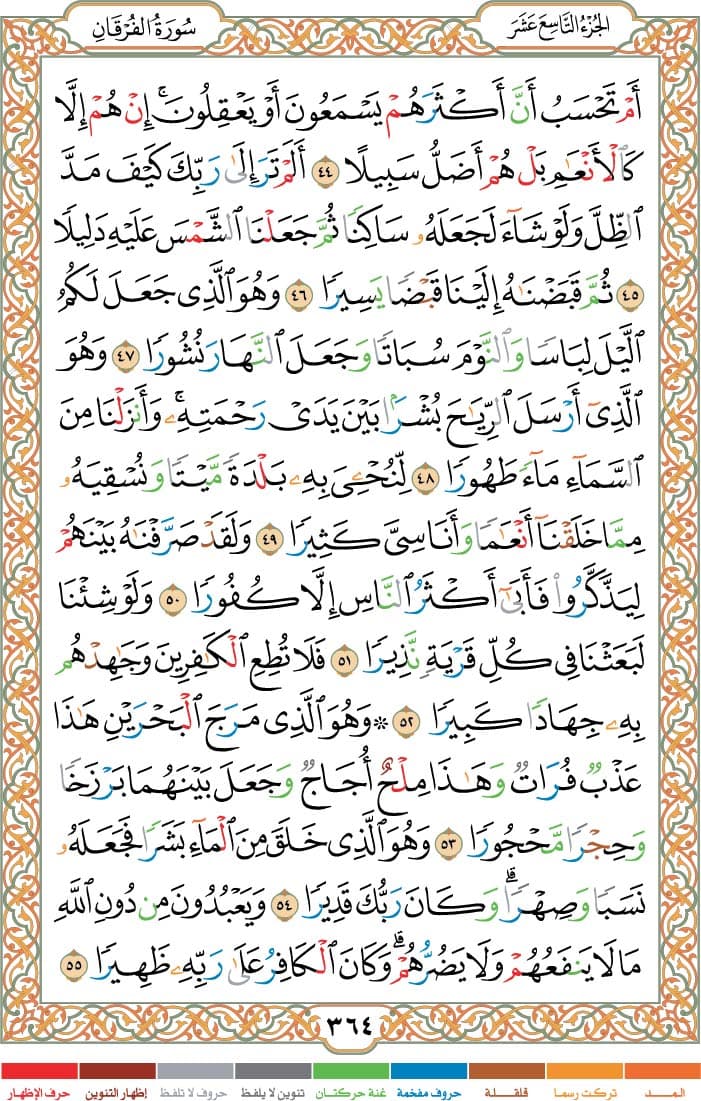 الجُزْءُ التَّاسِعَ عَشَرَ
سُورَةُ الفُرْقَانِ
أَمْ تَحْسَبُ أَنَّ أَكْثَرَهُمْ يَسْمَعُونَ أَوْ يَعْقِلُونَۚ إِنْ هُمْ إِلَّا
كَٱلْأَنْعَٰمِ بَلْ هُمْ أَضَلُّ سَبِيلًا ٤٤ أَلَمْ تَرَ إِلَىٰ رَبِّكَ كَيْفَ مَدَّ
ٱلظِّلَّ وَلَوْ شَآءَ لَجَعَلَهُۥ سَاكِنًا ثُمَّ جَعَلْنَا ٱلشَّمْسَ عَلَيْهِ دَلِيلًا
٤٥ ثُمَّ قَبَضْنَٰهُ إِلَيْنَا قَبْضًا يَسِيرًا ٤٦ وَهُوَ ٱلَّذِى جَعَلَ لَكُمُ
ٱلَّيْلَ لِبَاسًا وَٱلنَّوْمَ سُبَاتًا وَجَعَلَ ٱلنَّهَارَ نُشُورًا ٤٧ وَهُوَ
ٱلَّذِىٓ أَرْسَلَ ٱلرِّيَٰحَ بُشْرًۢا بَيْنَ يَدَىْ رَحْمَتِهِۦۚ وَأَنزَلْنَا مِنَ
ٱلسَّمَآءِ مَآءً طَهُورًا ٤٨ لِّنُحْـِۧىَ بِهِۦ بَلْدَةً مَّيْتًا وَنُسْقِيَهُۥ
مِمَّا خَلَقْنَآ أَنْعَٰمًا وَأَنَاسِىَّ كَثِيرًا ٤٩ وَلَقَدْ صَرَّفْنَٰهُ بَيْنَهُمْ
لِيَذَّكَّرُوا۟ فَأَبَىٰٓ أَكْثَرُ ٱلنَّاسِ إِلَّا كُفُورًا ٥٠ وَلَوْ شِئْنَا
لَبَعَثْنَا فِى كُلِّ قَرْيَةٍ نَّذِيرًا ٥١ فَلَا تُطِعِ ٱلْكَٰفِرِينَ وَجَٰهِدْهُم
بِهِۦ جِهَادًا كَبِيرًا ٥٢ ۞ وَهُوَ ٱلَّذِى مَرَجَ ٱلْبَحْرَيْنِ هَٰذَا
عَذْبٌ فُرَاتٌ وَهَٰذَا مِلْحٌ أُجَاجٌ وَجَعَلَ بَيْنَهُمَا بَرْزَخًا
وَحِجْرًا مَّحْجُورًا ٥٣ وَهُوَ ٱلَّذِى خَلَقَ مِنَ ٱلْمَآءِ بَشَرًا فَجَعَلَهُۥ
نَسَبًا وَصِهْرًاۗ وَكَانَ رَبُّكَ قَدِيرًا ٥٤ وَيَعْبُدُونَ مِن دُونِ ٱللَّهِ
مَا لَا يَنفَعُهُمْ وَلَا يَضُرُّهُمْۗ وَكَانَ ٱلْكَافِرُ عَلَىٰ رَبِّهِۦ ظَهِيرًا ٥٥
٣٦٤
المـــد تركت رسما قلقلة حروف مفخمة غنة حركتان تنوين لا يلفظ حروف لا تلفظ إظهار التنوين حرف الإظهار